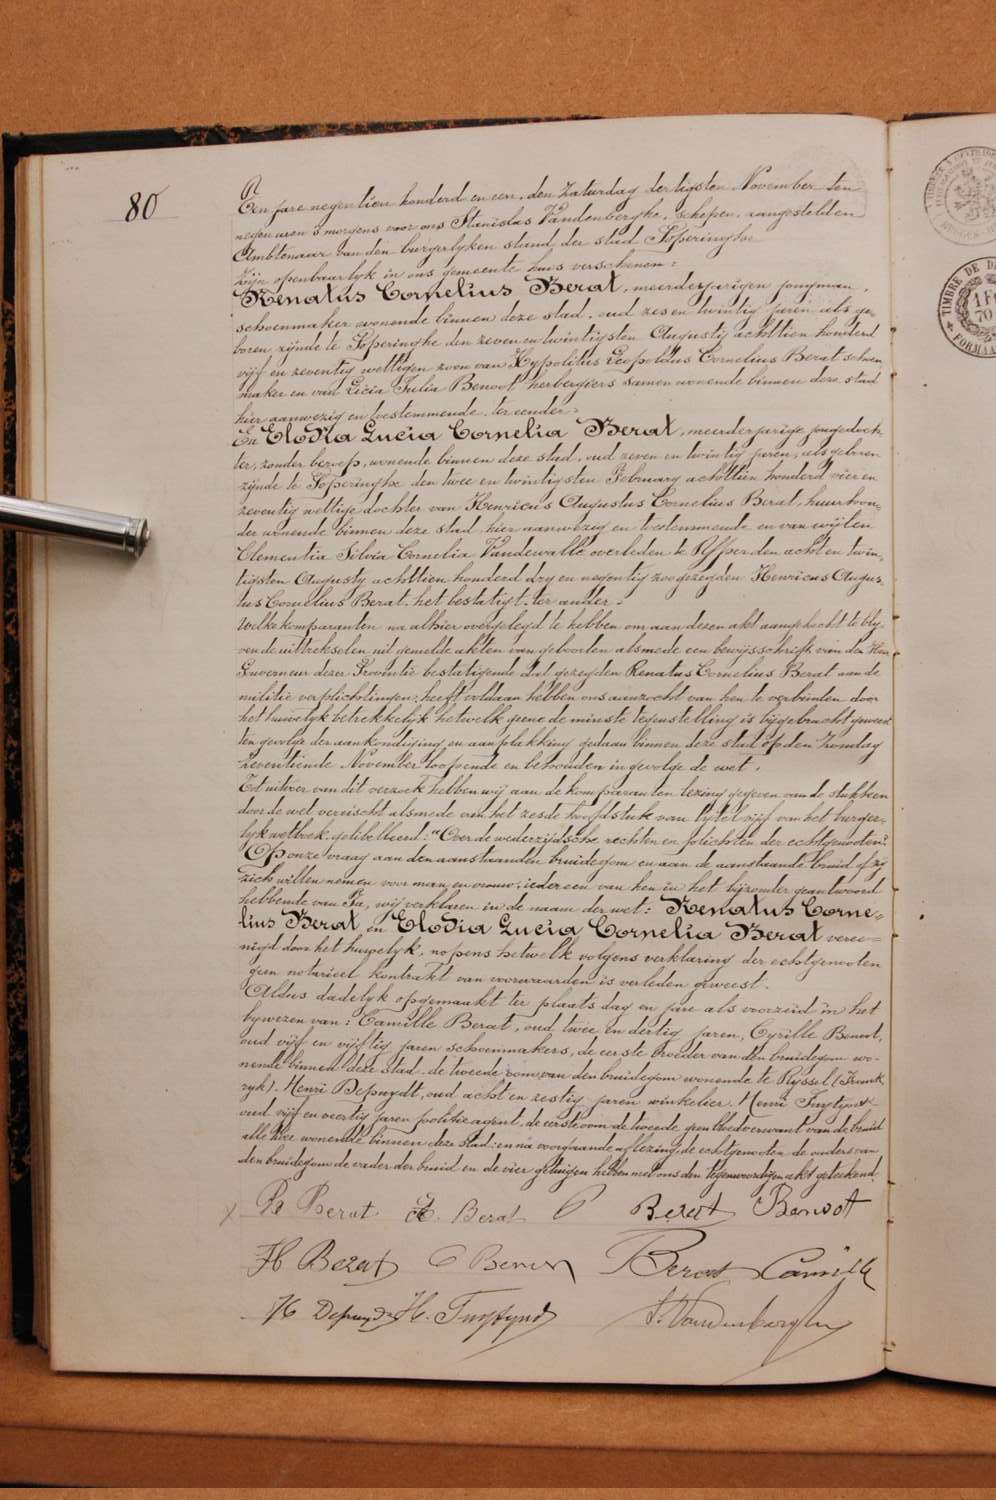 80
Een jare negentien honderd en een, den Zaturdag dertigsten November ten
negen uren 's morgens voor ons Stanislas Vandenberghe, schepen, aangestelden
Ambtenaar van den burgerlyken stand der stad Poperinghe
Zijn openbaarlyk in ons gemeente huis verschenen:
Renatus Cornelius Berat, meerderjarigen jongman,
schoenmaker wonende binnen deze stad, oud zes en twintig jaren als ge-
boren zijnde te Poperinghe den zeven en twintigsten Augusty achttien honderd
vijf en zeventig wettigen zoon van Hypolitus Leopoldus Cornelius Berat schoen
maker en van Licia Julia Benoot herbergiers samen wonende binnen deze stad
hier aanwezig en toestemmende, ter eender.
En Elodia Lucia Cornelia Berat, meerderjarige jongedoch
ter, zonder beroep, wonende binnen deze stad, oud zeven en twintig jaren, als geboren
zijnde te Poperinghe den twee en twintigsten February achttien honderd vier en
zeventig wettige dochter van Henricus Augustus Cornelius Berat, huurhou-
der wonende binnen deze stad hier aanwezig en toestemmende en van wijlen
Clementia Silvia Cornelia Vandewalle overleden te Ypper den acht en twin-
tigsten Augusty achttien honderd dry en negentig zoo gezegden Henricus Augus-
tus Cornelius Berat. het bestatigt. ter ander.
Welke komparanten na alhier overgelegd te hebben om aan dezen akt aangehecht te bly-
ven de uittrekselen uit gemelde akten van geboorten alsmede een bewijsschrift van den Heer
Gouverneur dezer Provintie bestatigende dat gezegden Renatus Cornelius Berat aan de
militie verplichtingen heeft voldaan hebben ons aanzocht van hen te verbinden door
het huwelyk betrekkelyk hetwelk geene de minste tegenstelling is bijgebracht geweest
ten gevolge der aankondiging en aanplakking gedaan binnen deze stad op den Zondag
zeventiende November loopende en behouden in gevolge de wet.
Tot uitvoer van dit verzoek hebben wij aan de komparanten lezing gegeven van de stukken
door de wet vereischt alsmede van het zesde hoofdstuk van tytel vijf van het burger-
lyk wetboek gelibelleerd: "Over de wederzijdsche rechten en plichten der echtgenooten".
Op onze vraag aan den aanstaanden bruidegom en aan de aanstaande bruid of zy
zich willen nemen voor man en vrouw; ieder een van hen in het bijzonder geantwoord
hebbende van Ja, wij verklaren in de naam der wet: Renatus Corne-
lius Berat en Elodia Lucia Cornelia Berat veree-
nigd door het huwelyk, nopens hetwelk volgens verklaring der echtgenooten
geen notarieel kontrakt van voorwaarden is verleden geweest.
Aldus dadelyk opgemaakt ter plaats dag en jare als voorzeid in het
bywezen van: Camille Berat, oud twee en dertig jaren, Cyrille Benoot,
oud vijf en vijftig jaren schoenmakers, de eerste broeder van den bruidegom wo-
nende binnen deze stad de tweede oom van den bruidegom wonende te Ryssel (Frank
ryk). Henri Depuydt, oud acht en zestig jaren winkelier, Henri
oud vijf en veertig jaren politieagent, de eerste oom de tweede geen bloedverwant van de bruid
alle twee wonende binnen deze stad: en na voorgaande aflezing, de echtgenooten de ouders van
den bruidegom de vader der bruid en de vier getuigen hebben met ons den tegenwoordigen akt geteekend.
R Berat E. Berat Berat Benoot
H Berat C Benoot Berat Camille
H Depuydt H. S. Vandenberghe
TIMBRE DE
1 F
70
FORMA